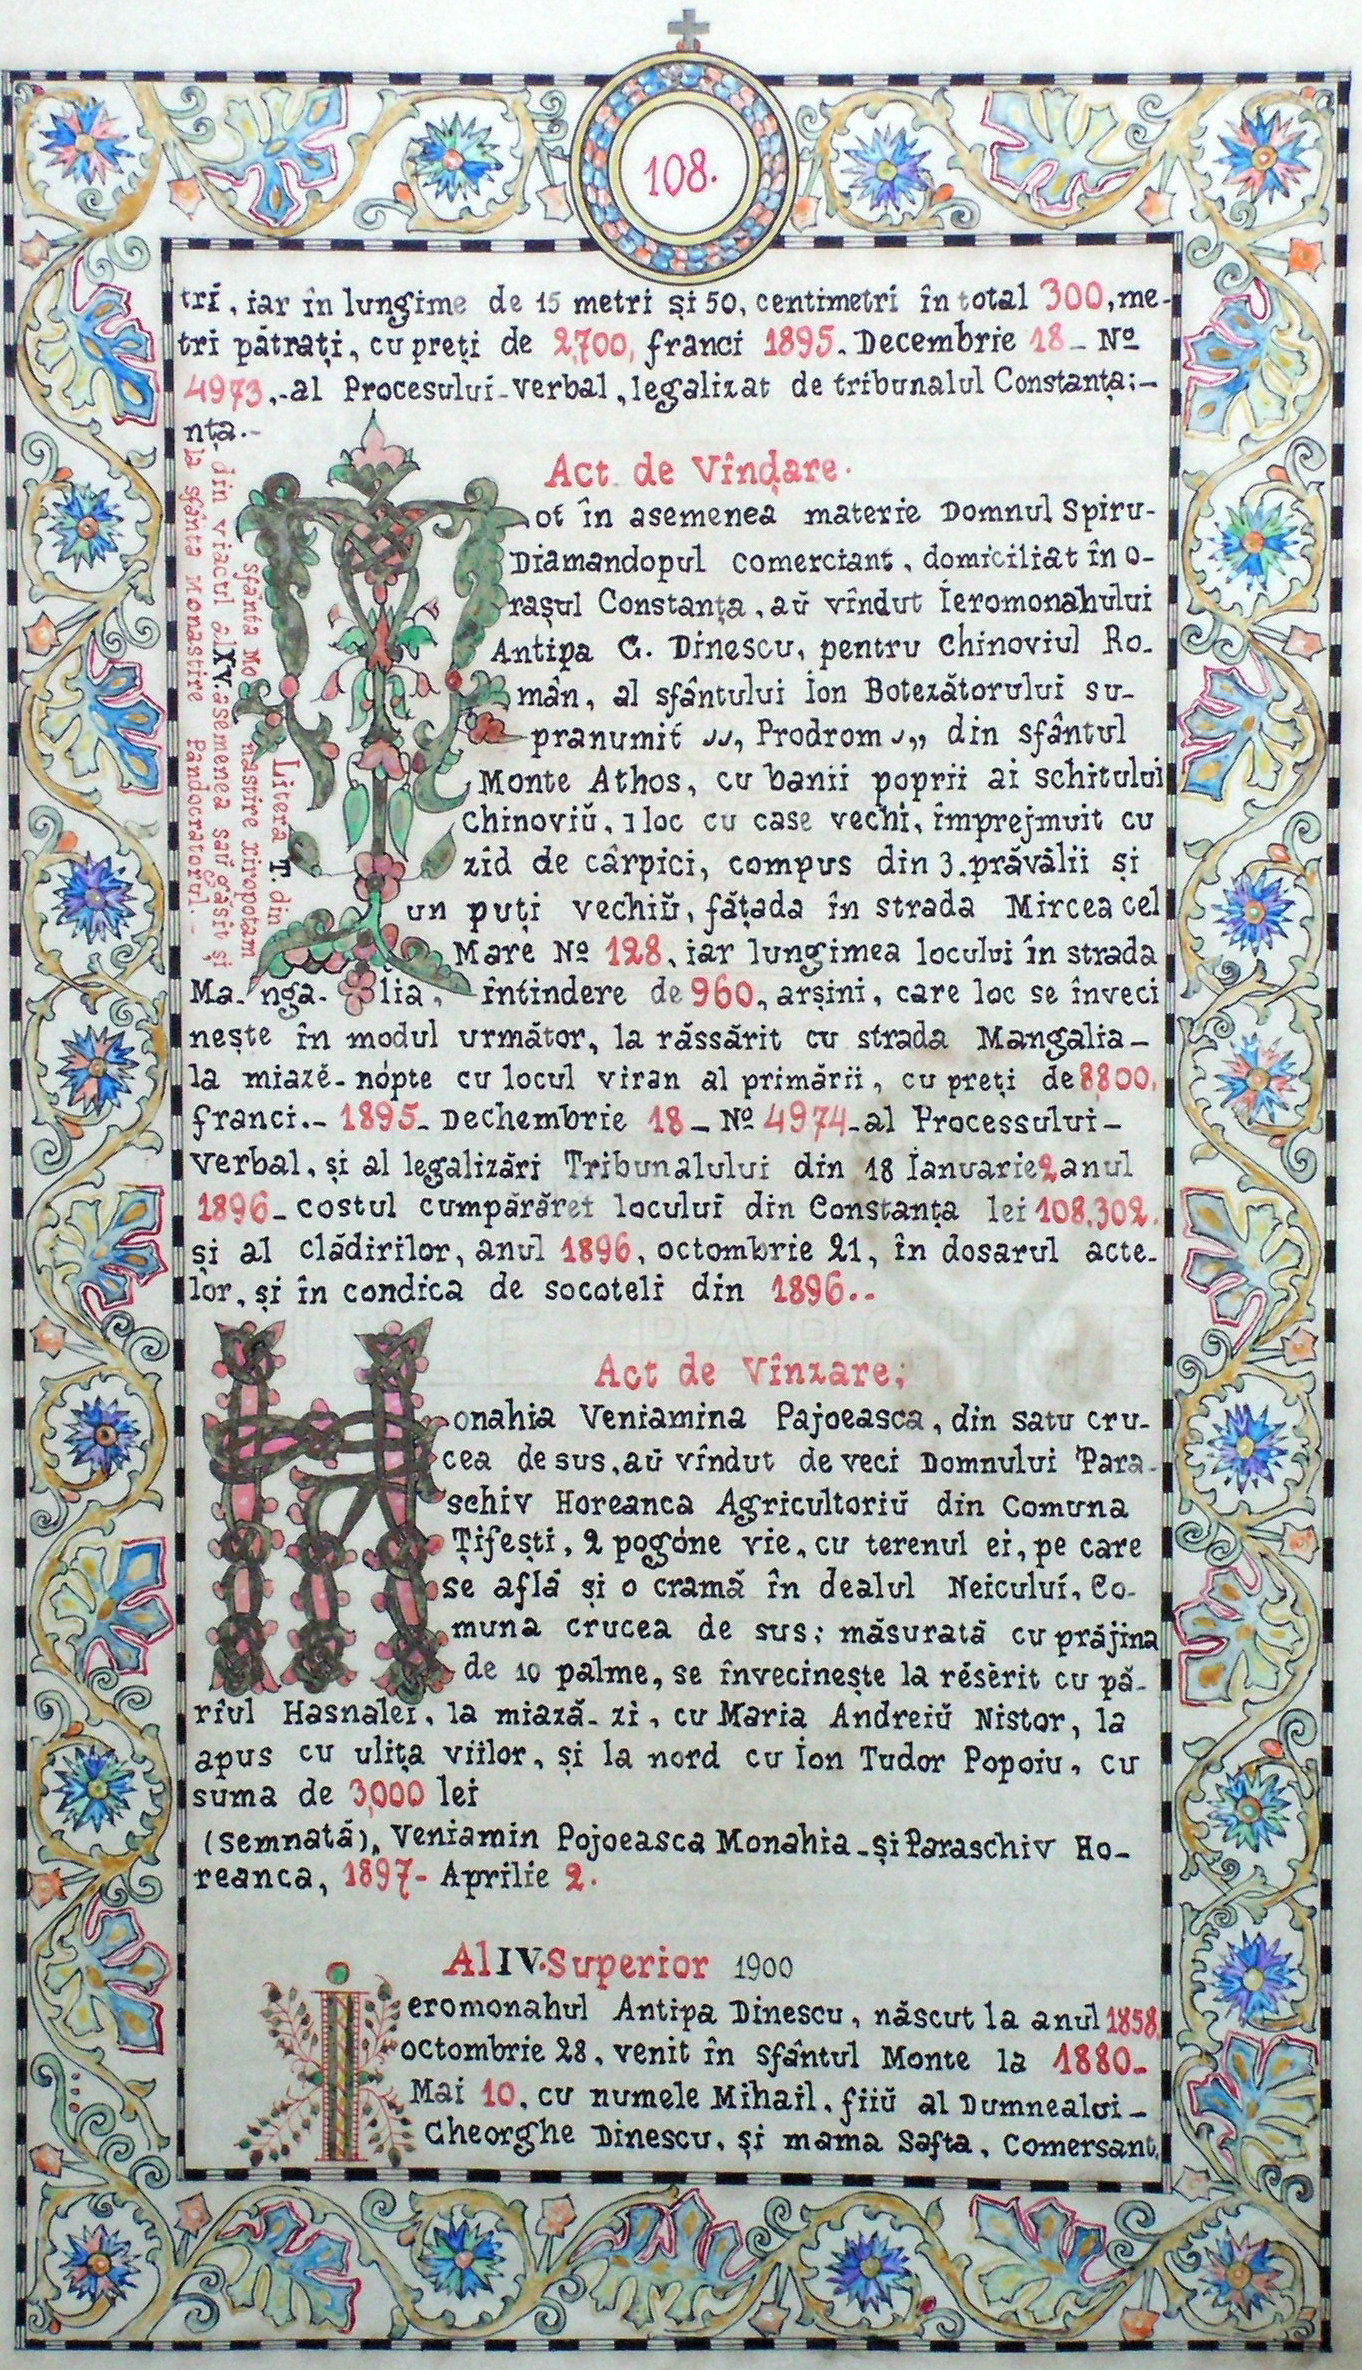 108.
tri, iar în lungime de 15 metri și 50, centimetri în total 300, me-
tri pătrați, cu preți de 2,700, franci 1895. Decembrie 18 _ No
4973,.-al Procesului-verbal, legalizat de tribunalul Constanța:-
nța.-
Act de Vîndare.
Tot în asemenea materie Domnul Spiru-
Diamandopul comerciant, domiciliat în o-
rașul Constanța, aŭ vîndut Ieromonahului
Antipa G. Dinescu, pentru Chinoviul Ro-
mân, al sfântului Ion Botezătorului su-
pranumit „, Prodrom „ din sfântul
Monte Athos, cu banii poprii ai schitului
Chinoviŭ, 1 loc cu case vechi, împrejmuit cu
zid de cârpici, compus din 3. prăvălii și
un puți vechiŭ, fățada în strada Mircea cel
Mare No 128, iar lungimea locului în strada
Ma-nga-lia, întindere de 960, arșini, care loc se înveci
nește în modul următor, la răssărit cu strada Mangalia-
la miazĕ-nópte cu locul viran al primării, cu preți de 8,800,
franci.- 1895_ Dechembrie 18 _ No 4974_al Processului-
verbal, și al legalizări Tribunalului din 18 Ianuarie 2 anul
1896_ costul cumpărăreĭ loculuĭ din Constanța lei 108,302,
și al clădirilor, anul 1896, octombrie 21, în dosarul acte-
lor, și în condica de socoteli din 1896..
Litera T. din
sfânta Mo nastire Xiropotam
din viacul al XV. asemenea saŭ găsit și
la sfânta Monastire Pandocratorul._
Act de Vînzare;
Monahia Veniamina Pajoeasca, din satu cru-
cea de sus, aŭ vîndut de veci Domnului Para-
schiv Horeanca Agricultoriŭ din Comuna
Țifești, 2 pogóne vie, cu terenul ei, pe care
se află și o cramă în dealul Neiculuí, Co-
muna crucea de sus; măsurată cu prăjina
de 10 palme, se învecinește la rĕsĕrit cu pă-
rîul Hasnaleĭ, la miază-zi, cu Maria Andreiŭ Nistor, la
apus cu ulița viilor, și la nord cu Ion Tudor Popoiu, cu
suma de 3,000 lei
(semnată), Veniamin Pojoeasca Monahia_și Paraschiv Ho-
reanca, 1897- Aprilie 2.
Al IV. Superior 1900
Ieromonahul Antipa Dinescu, născut la anul 1858,
octombrie 28, venit în sfântul Monte la 1880_
Mai 10, cu numele Mihail, fiiŭ al Dumnealui-
Gheorghe Dinescu, și mama Safta, Comersant,